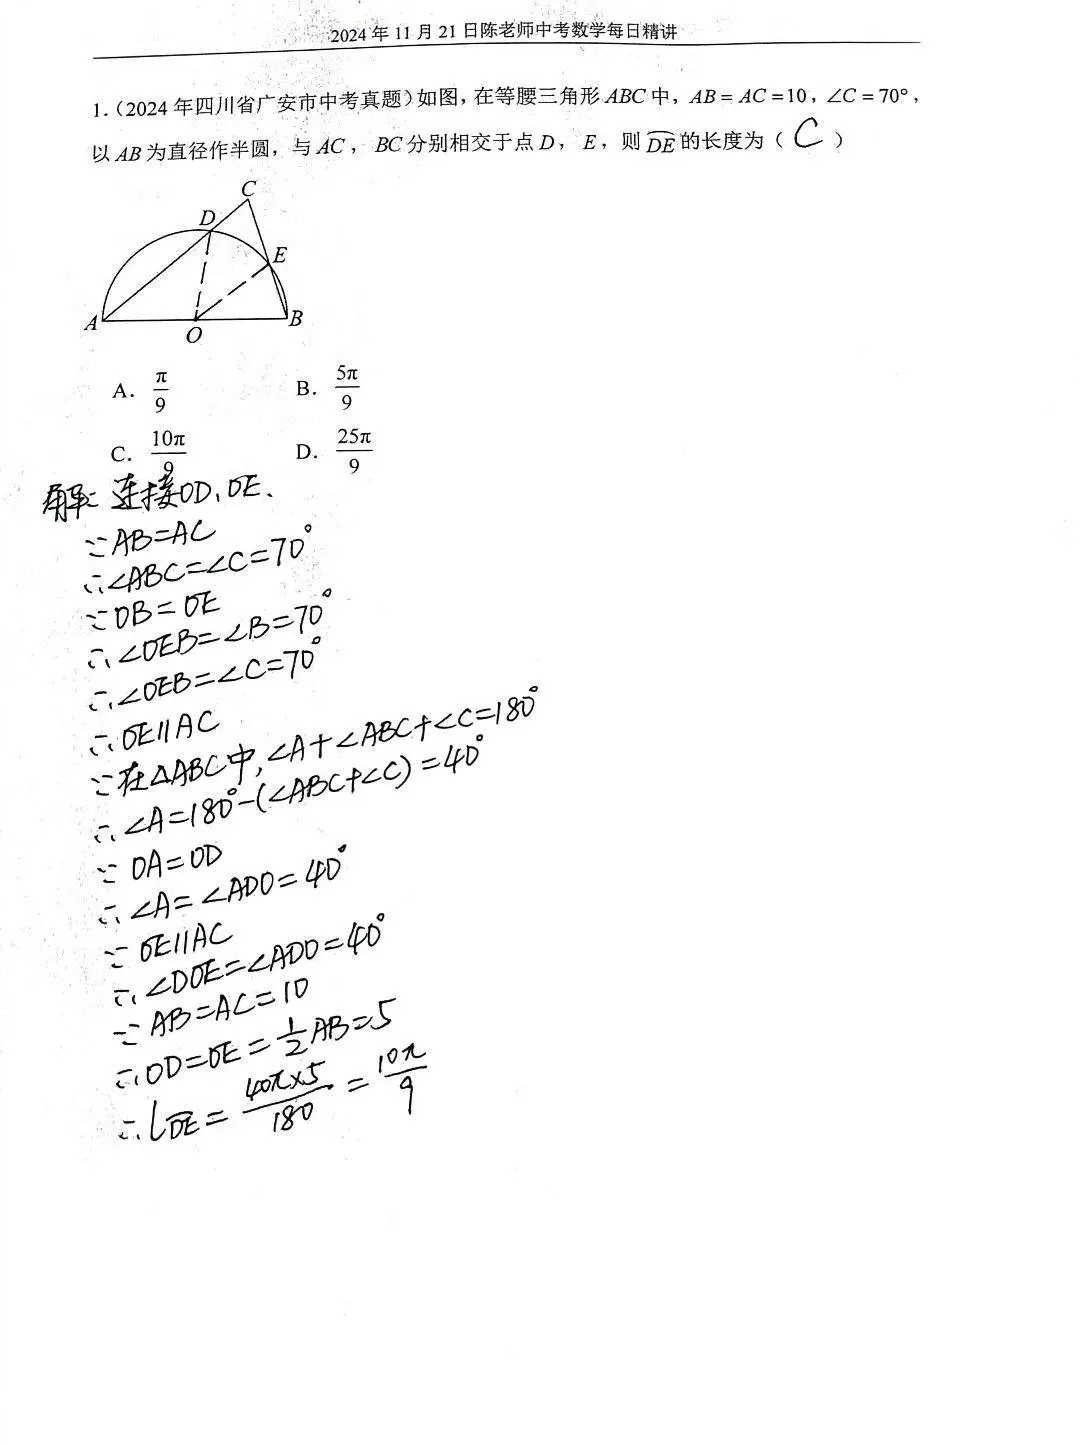 2024年11月21日陈老师中考数学每日精讲
1.（2024年四川省广安市中考真题）如图，在等腰三角形ABC中，AB=AC=10，∠C=70°，
以AB为直径作半圆，与AC，BC分别相交于点D，E，则DE的长度为（C）
C
D
E
A
O
B
A. π/9 B. 5π/9
C. 10π/9 D. 25π/9
解：连接OD、OE.
∵AB=AC
∴∠ABC=∠C=70°
∵OB=OE
∴∠OEB=∠B=70°
∴∠OEB=∠C=70°
∴OE∥AC
∵在△ABC中，∠A+∠ABC+∠C=180°
∴∠A=180°-(∠ABC+∠C)=40°
∵OA=OD
∴∠A=∠ADO=40°
∵OE∥AC
∴∠DOE=∠ADO=40°
∵AB=AC=10
∴OD=OE=1/2AB=5
∴lDE=40π×5/180=10π/9